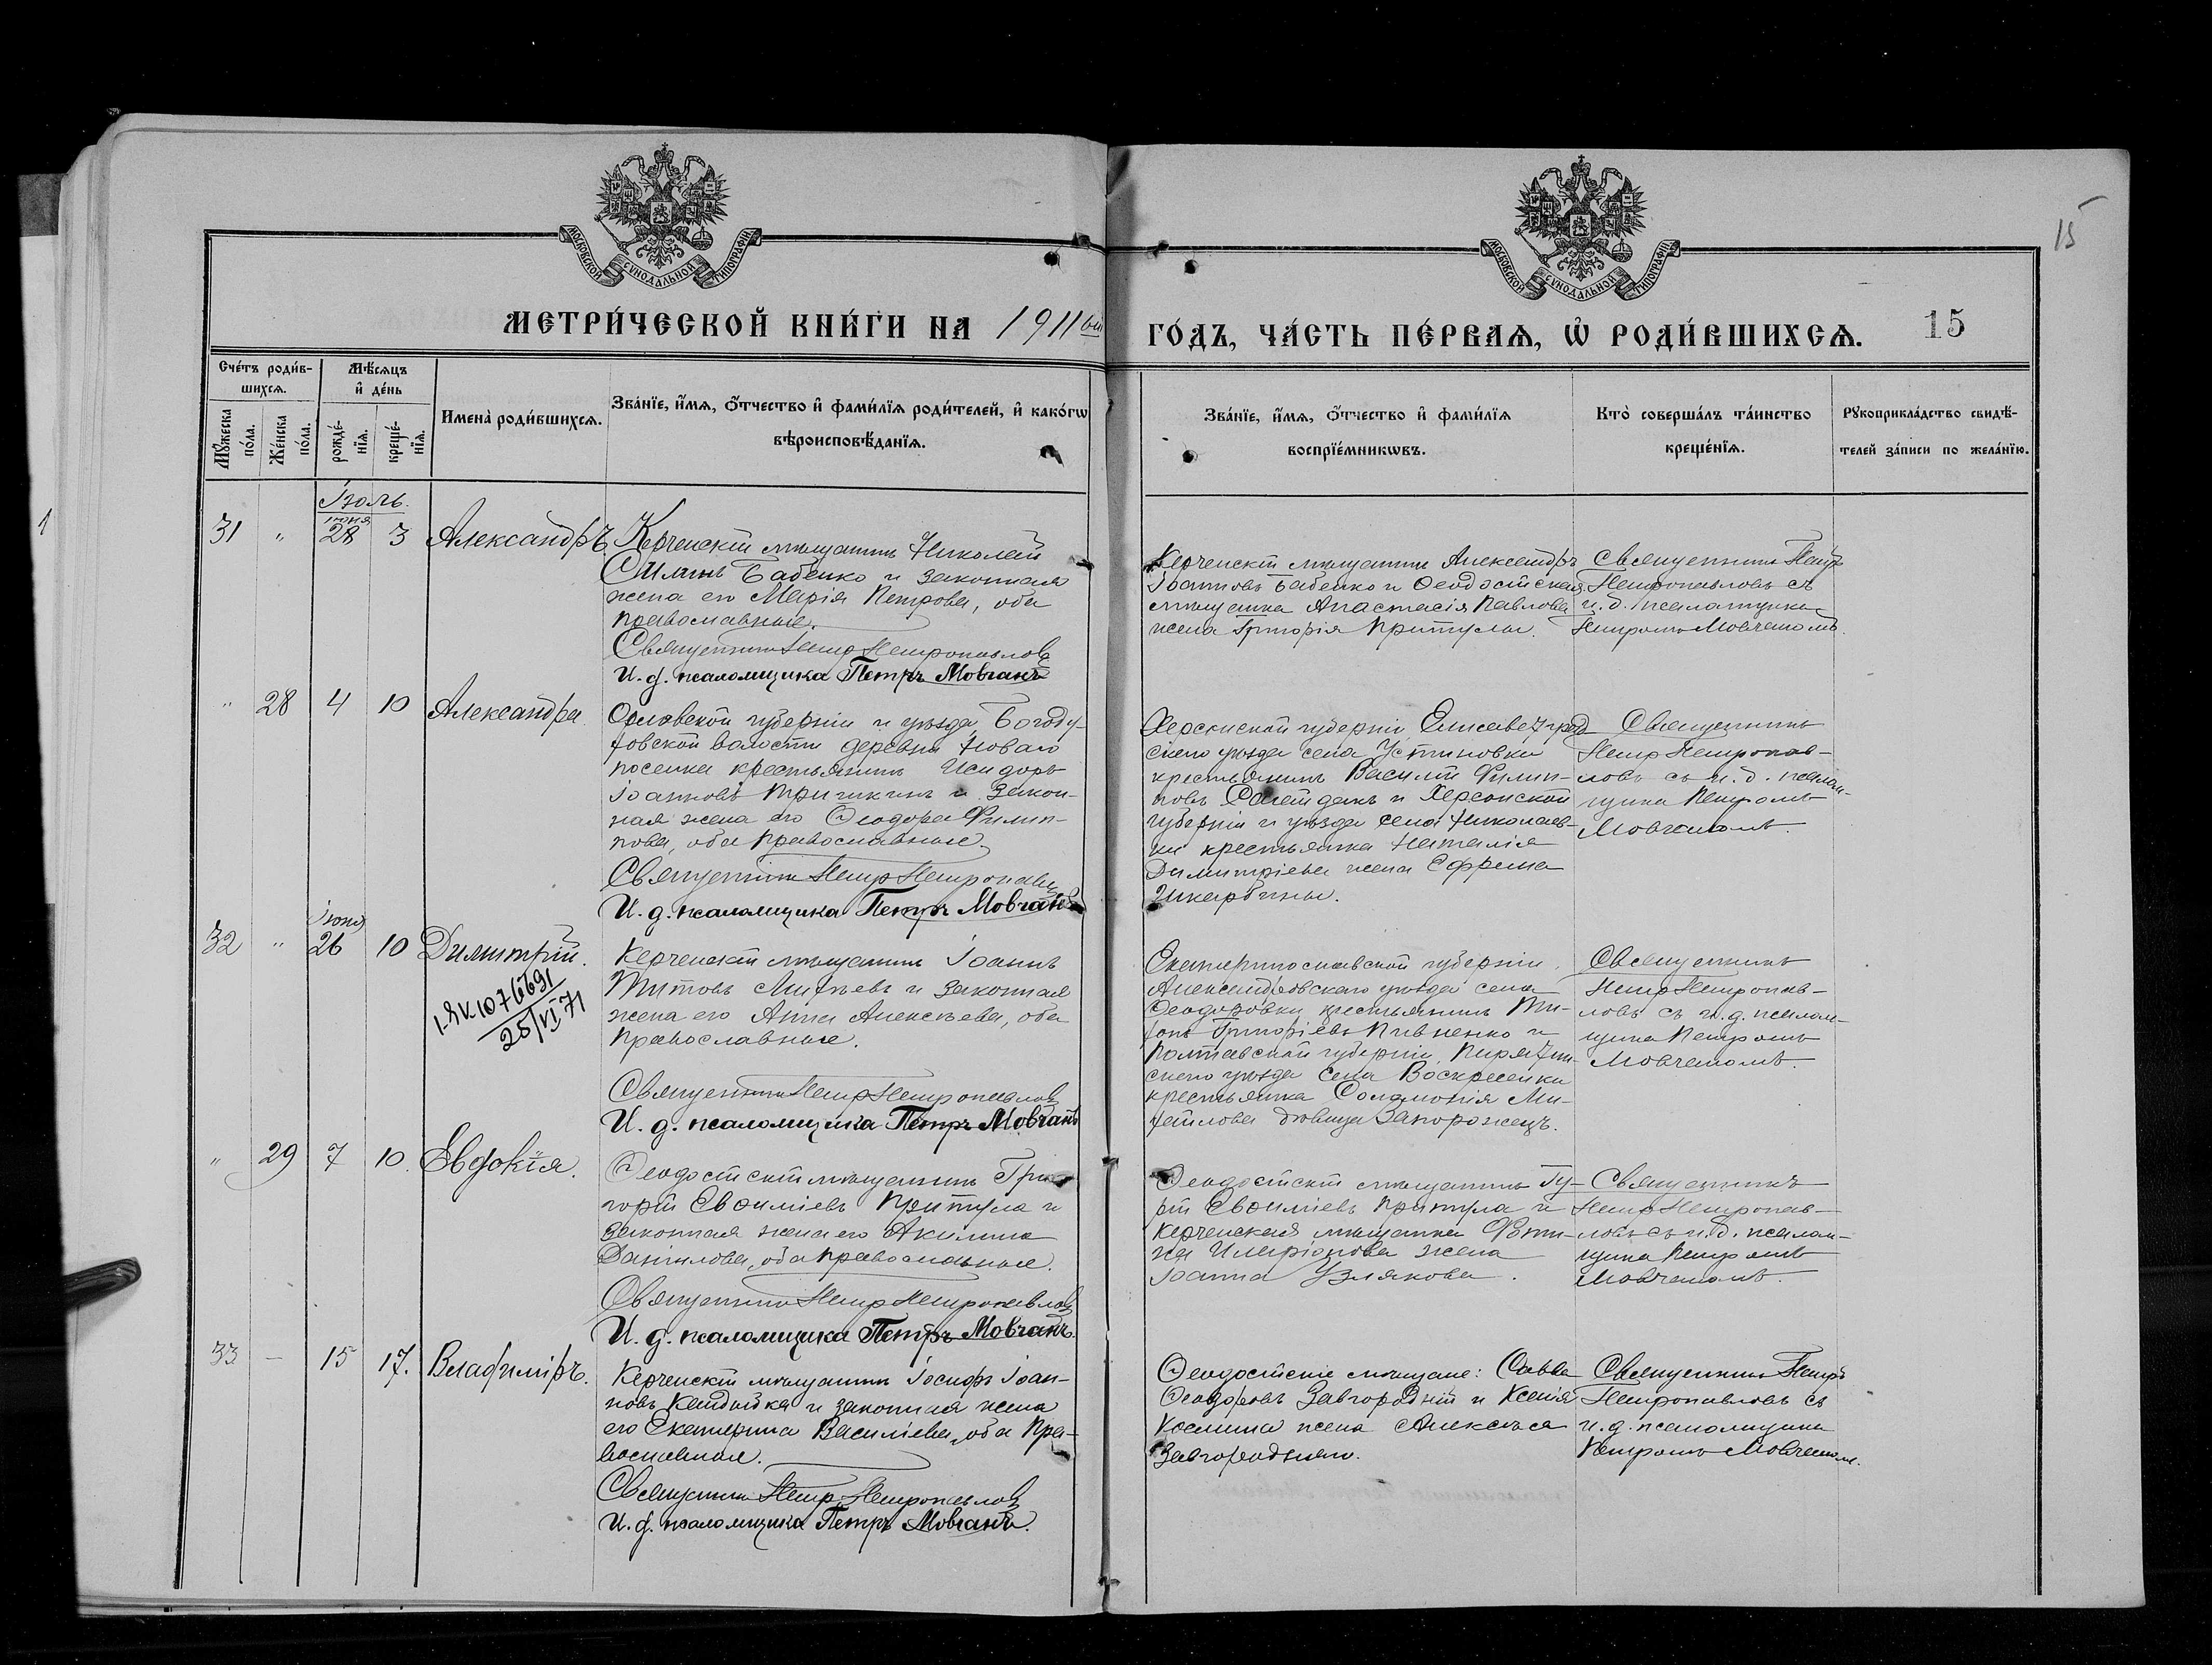 15
МОСКОВСКОЙ СѴНОДАЛЬНОЙ ТИПОГРАФІИ
МОСКОВСКОЙ СѴНОДАЛЬНОЙ ТИПОГРАФІИ
МЕТРИ́ЧЕСКОЙ КНИ́ГИ НА 1911ый ГО́ДЪ, ЧА́СТЬ ПЕ́РВАѦ, Ѡ҆ РОДИ́ВШИХСѦ. 15
Сче́тъ роди́в-
шихсѧ.
Мꙋ́жеска по́ла.
Же́нска по́ла.
Мѣ́сѧцъ
и҆ де́нь
рожде́-
нїѧ.
креще́-
нїѧ.
Имена̀ роди́вшихсѧ.
Зва́нїе, и҆́мѧ, ѻ҆́тчество и҆ фами́лїѧ роди́телей, и҆ како́гѡ
вѣроисповѣ́данїѧ.
Зва́нїе, и҆́мѧ, ѻ҆́тчество и҆ фами́лїѧ
воспрїе́мникѡвъ.
Кто̀ соверша́лъ та́инство
креще́нїѧ.
Рꙋкоприкла́дство свидѣ́-
телей за́писи по жела́нїю.
1
Іюль.
31 " іюня 28 3 Александръ.
Керченскій мѣщанинъ Николай
Силинъ Бабенко и законная
жена его Марія Петрова, оба
православные.
Священникъ Петръ Петропавловъ
И. д. псаломщика Петръ Мовчанъ
Керченскій мѣщанинъ Александръ
Іоанновъ Бабенко и Ѳеодосійская
мѣщанка Анастасія Павлова
жена Григорія Притулы.
Священникъ Петръ
Петропавловъ съ
и. д. псаломщика
Петромъ Мовчаномъ.
" 28 4 10 Александра.
Орловской губерніи и уѣзда, Богоду-
ховской волости деревни Новаго
поселка крестьянинъ Исидоръ
Іоанновъ Тричикинъ и закон-
ная жена его Ѳеодора Филип-
пова, оба православные.
Священникъ Петръ Петропавловъ
И. д. псаломщика Петръ Мовчанъ
Херсонской губерніи, Елисаветград-
скаго уѣзда села Устиновки
крестьянинъ Василій Филип-
повъ и Херсонской
губерніи и уѣзда села Николаев-
ки крестьянка Наталія
Димитріева жена Ефрема
Шкарбины.
Священникъ
Петръ Петропав-
ловъ съ и. д. псалом-
щика Петромъ
Мовчаномъ.
32 " Іюня 26 10 Димитрій.
I-ЯК 1076691
25/VI 71
Керченскій мѣщанинъ Іоаннъ
Титовъ Михѣевъ и законная
жена его Анна Алексѣева, оба
православные.
Священникъ Петръ Петропавловъ
И. д. псаломщика Петръ Мовчанъ
Екатеринославской губерніи,
Александровскаго уѣзда села
Ѳеодоровки крестьянинъ Ти-
хонъ Григоріевъ Пивненко и
Полтавской губерніи, Пирятин-
скаго уѣзда села Воскресенки
крестьянка Соломонія Ми-
хайлова дѣвица Запорожецъ.
Священникъ
Петръ Петропав-
ловъ съ и. д. псалом-
щика Петромъ
Мовчаномъ.
" 29 7 10. Евдокія.
Ѳеодосійскій мѣщанинъ Гри-
горій Евѳиміевъ Притула и
законная жена его Акилина
Даніилова, оба православные.
Священникъ Петръ Петропавловъ
И. д. псаломщика Петръ Мовчанъ.
Ѳеодосійскій мѣщанинъ Гу-
рій Евѳиміевъ Притула и
Керченская мѣщанка Фоти-
на Иларіонова жена
Іоанна Узлякова.
Священникъ
Петръ Петропав-
ловъ съ и. д. псалом-
щика Петромъ
Мовчаномъ.
33 — 15 17. Владиміръ.
Керченскій мѣщанинъ Іосифъ Іоан-
новъ Кандыбка и законная жена
его Екатерина Василіева, оба пра-
вославные.
Священникъ Петръ Петропавловъ
И. д. псаломщика Петръ Мовчанъ.
Ѳеодосійскіе мѣщане: Савва
Ѳеодоровъ Завгородній и Ксенія
Космина жена Алексѣя
Завгородняго.
Священникъ Петръ
Петропавловъ съ
и. д. псаломщика
Петромъ Мовчаномъ.